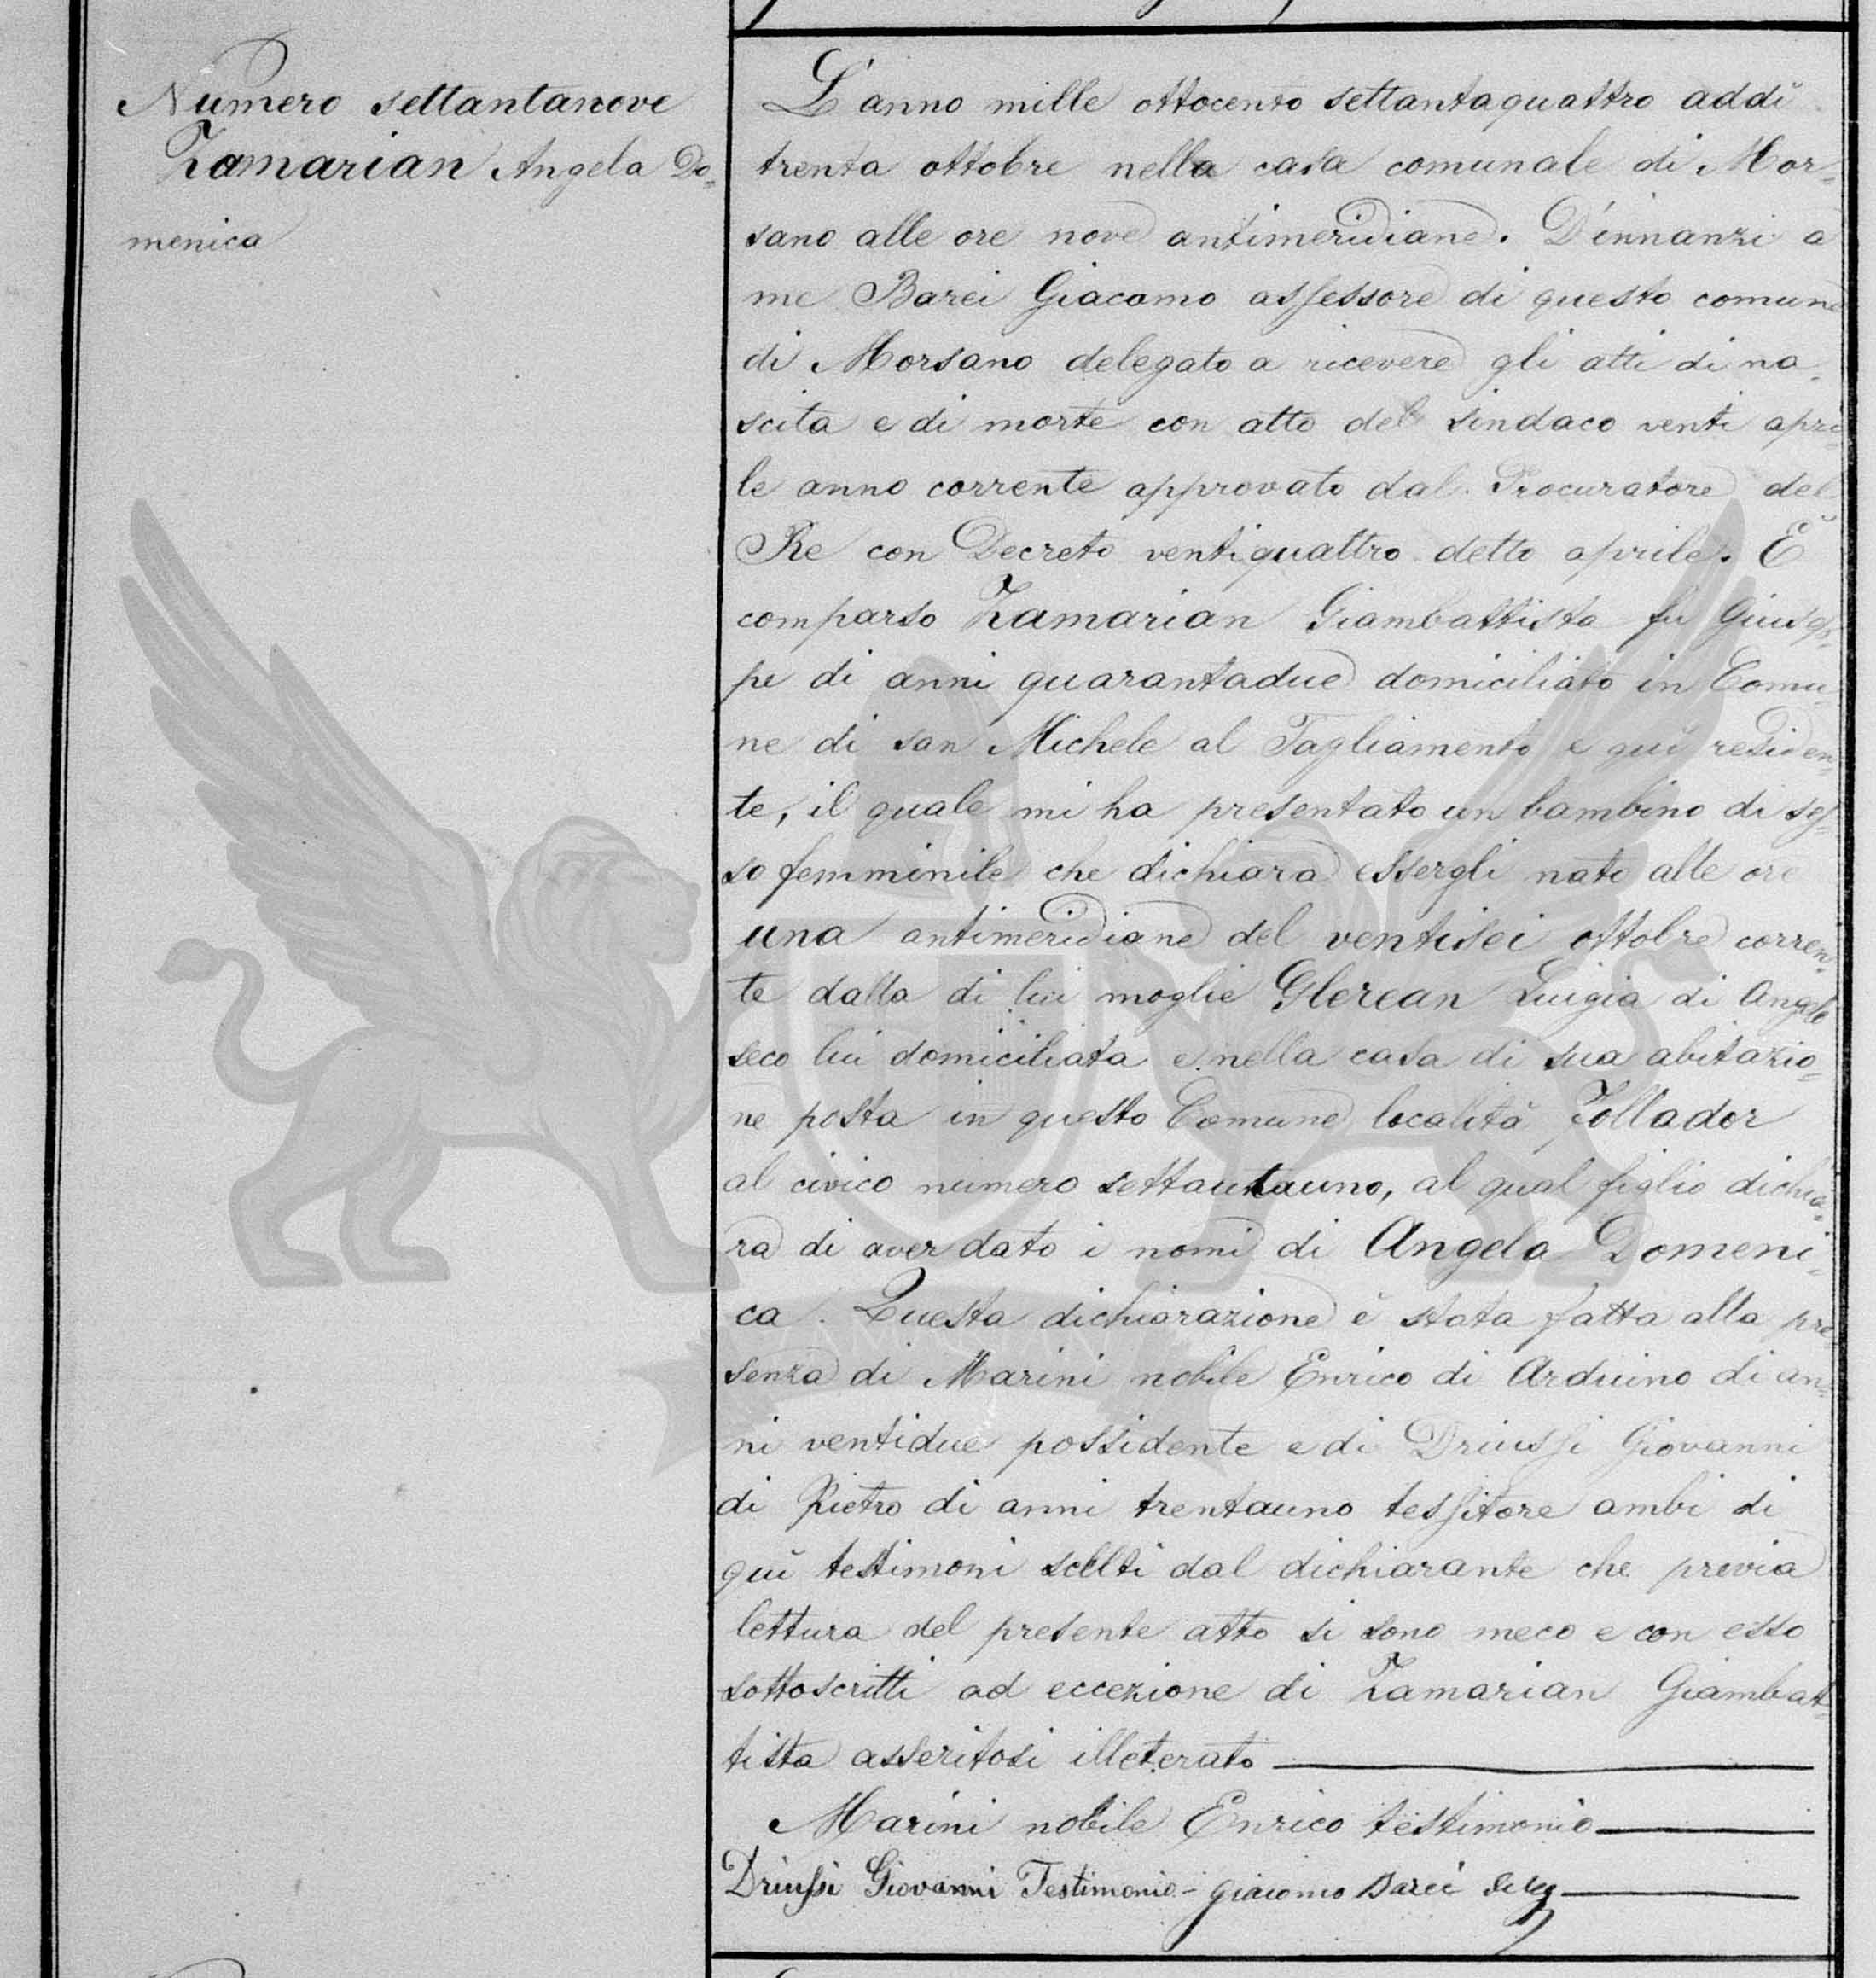 Numero settantanove
Zamarian Angela Do=
menica
L'anno mille ottocento settantaquattro addì
trenta ottobre nella casa comunale di Mor=
sano alle ore nove antimeridiane. D'innanzi a
me Barei Giacomo assessore di questo comune
di Morsano delegato a ricevere gli atti di na=
scita e di morte con atto del sindaco venti apri=
le anno corrente approvato dal Procuratore del
Re con Decreto ventiquattro detto aprile. È
comparso Zamarian Giambattista fu Giusep=
pe di anni quarantadue domiciliato in Comu=
ne di san Michele al Tagliamento e quì residen=
te, il quale mi ha presentato un bambino di ses=
so femminile che dichiara essergli nato alle ore
una antimeridiane del ventisei ottobre corren=
te dalla di lui moglie Glerean Luigia di Angelo
seco lui domiciliata e nella casa di sua abitazio=
ne posta in questo Comune località
al civico numero settantauno, al qual figlio dichia=
ra di aver dato i nomi di Angela Domeni=
ca. Questa dichiarazione è stata fatta alla pre
senza di Marini nobile Enrico di Arduino di an=
ni ventidue possidente e di Driussi Giovanni
di Pietro di anni trentauno tessitore ambi di
quì testimoni scelti dal dichiarante che previa
lettura del presente atto si sono meco e con esso
sottoscritti ad eccezione di Zamarian Giambat=
tista asseritosi illeterato
Marini nobile Enrico testimonio
Driussi Giovanni Testimonio - Giacomo Barei deleg